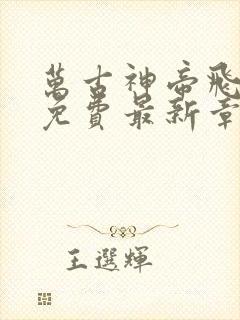 萬古神帝飛
免費最新章
王選輝